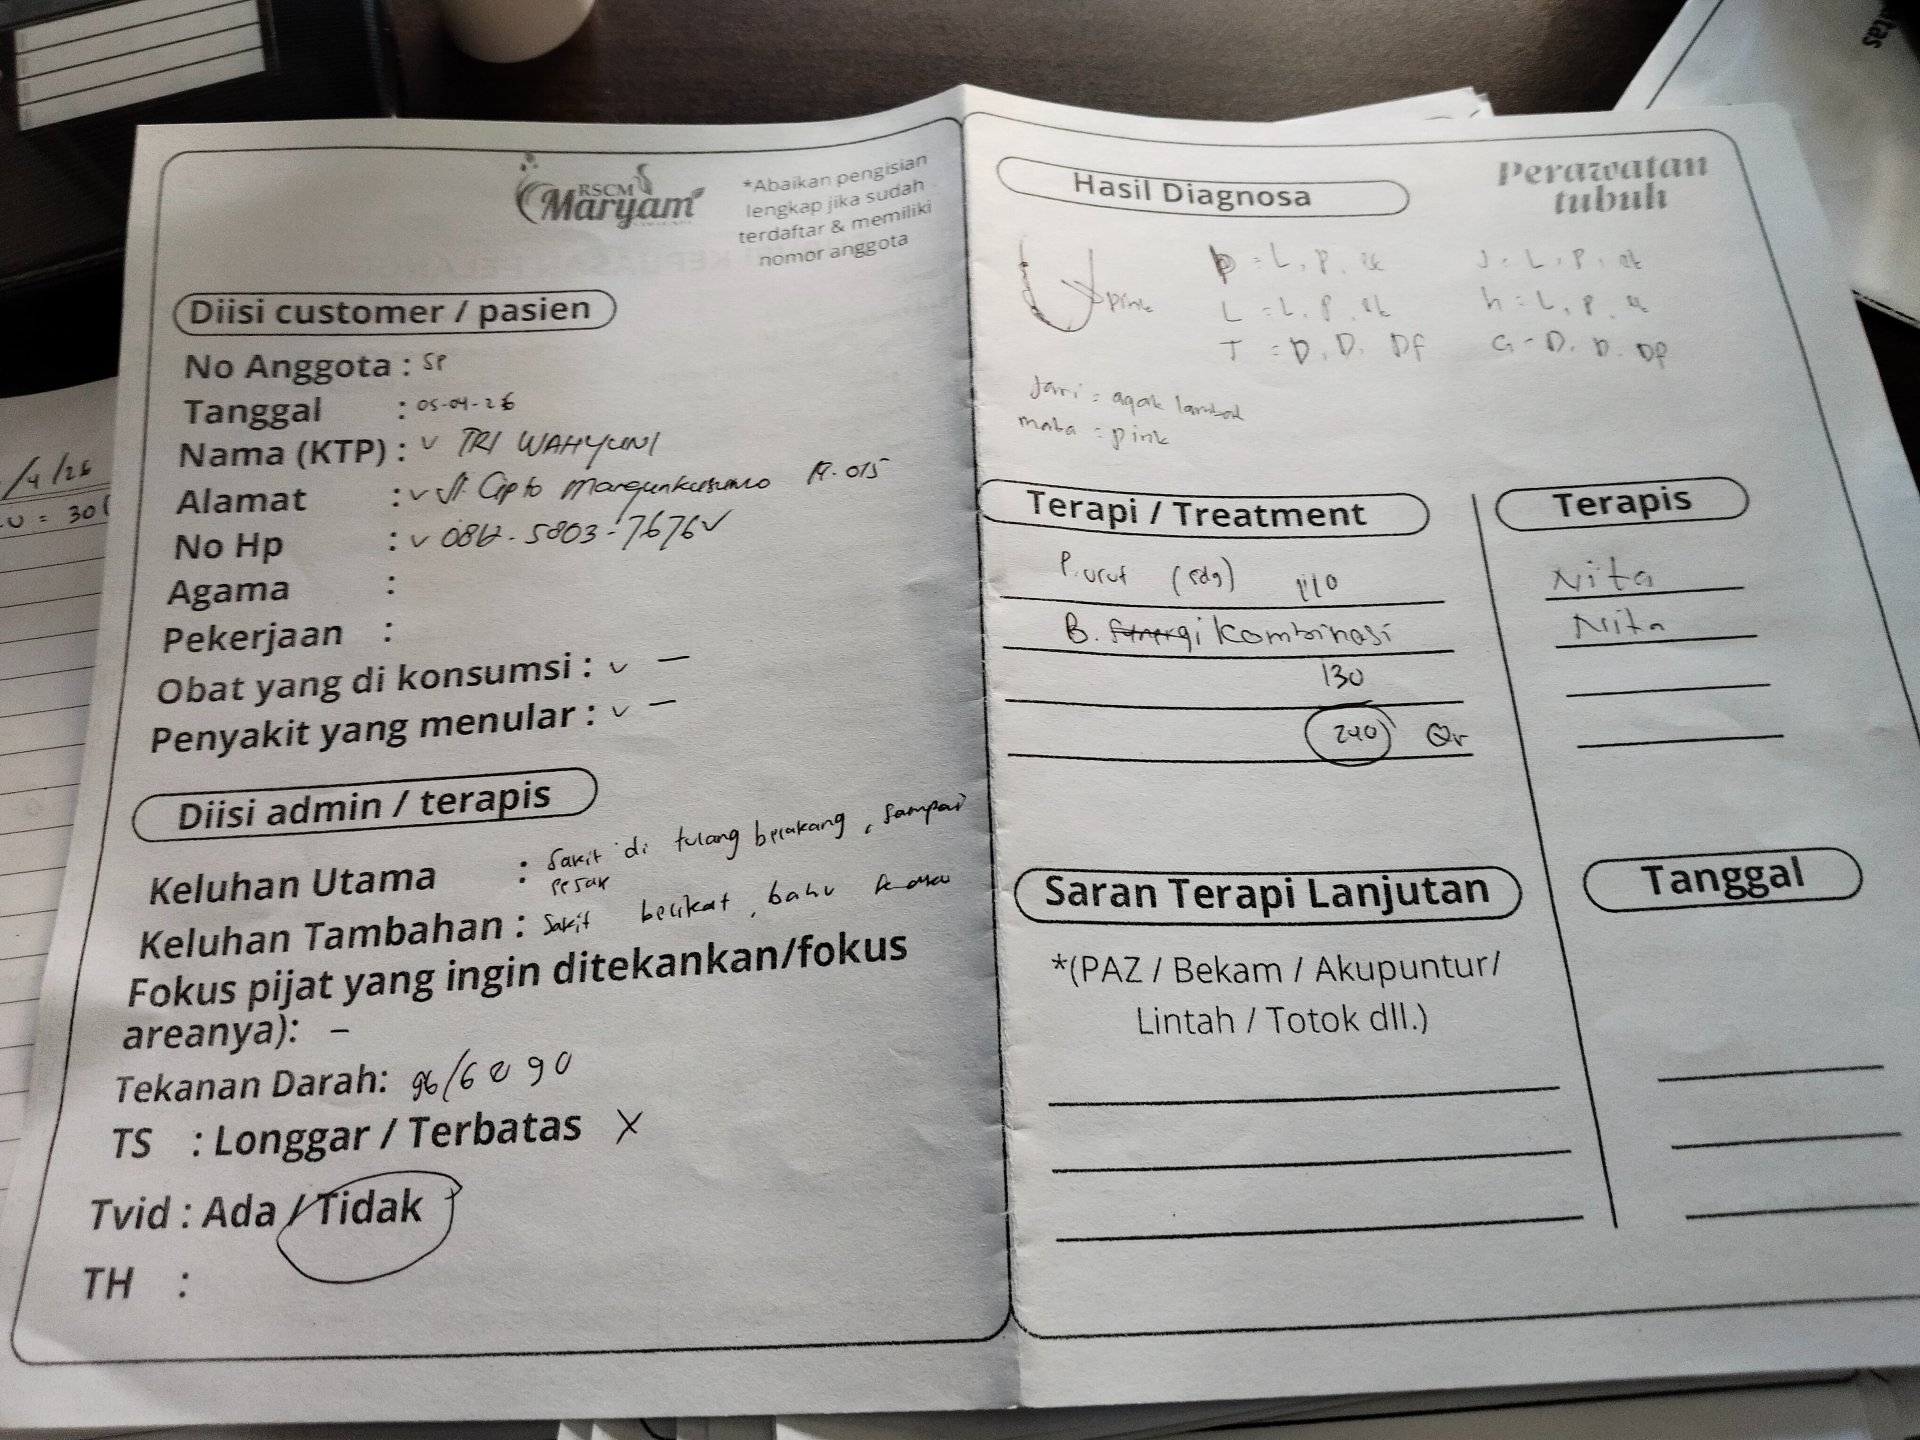 RSCM
Maryam
*Abaikan pengisian
lengkap jika sudah
terdaftar & memiliki
nomor anggota
Diisi customer / pasien
No Anggota : SP
Tanggal : 05-04-26
Nama (KTP) : v TRI WAHYUNI
Alamat : v Jl. Cipto Mangunkusumo
No Hp : v
Agama :
Pekerjaan :
Obat yang di konsumsi : v –
Penyakit yang menular : v –
Diisi admin / terapis
Keluhan Utama : Sakit di tulang belakang, sampai
sesak
Keluhan Tambahan : Sakit belikat, bahu
Fokus pijat yang ingin ditekankan/fokus
areanya): –
Tekanan Darah: 96/60 90
TS : Longgar / Terbatas X
Tvid : Ada / Tidak
TH :
Perawatan
tubuh
Hasil Diagnosa
pink
L = L. P.
T = D. D. Df
G = D. D. Df
Jari = agak lambat
mata = pink
Terapi / Treatment
P. urut (sdg) 110
B. Sinergi Kombinasi
130
240 Qr
Terapis
Nita
Nita
Saran Terapi Lanjutan
*(PAZ / Bekam / Akupuntur/
Lintah / Totok dll.)
Tanggal
/4/26
= 30
itas